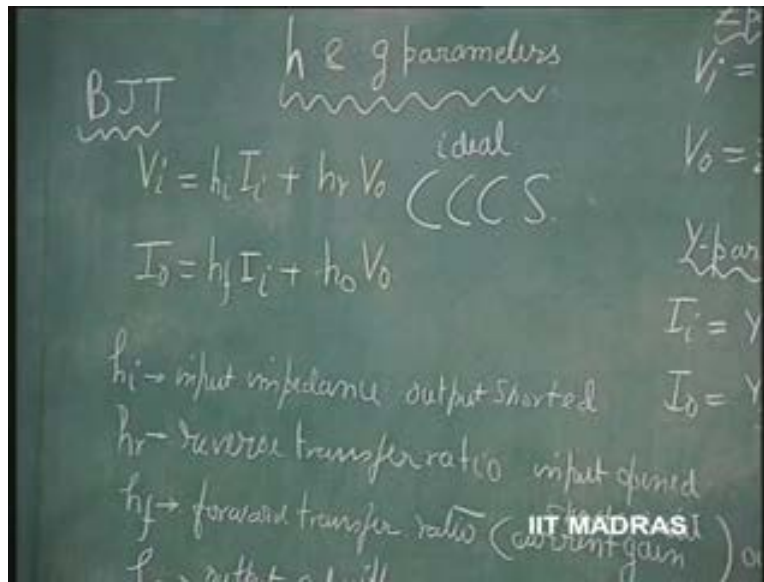 h & g parameters
BJT
ideal
Vi = hi Ii + hr Vo CCCS.
Io = hf Ii + ho Vo
hi → input impedance output shorted
hr → reverse transfer ratio input opened
hf → forward transfer ratio (current gain)
Vi =
Vo =
Y-par
Ii = Y
Io = Y
IIT MADRAS